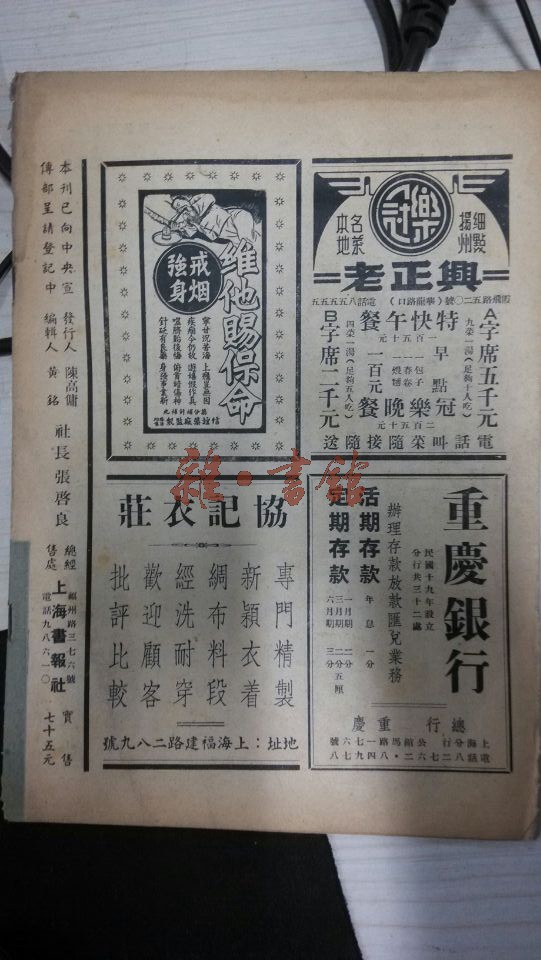 樂冠
細點
揚州
名菜
本地
老正興
霞飛路五二〇號（華龍路口）電話八五五五五
A字席五千元
九菜一湯（足夠十人吃）
特快午餐
一百五十元
早點
一百元
冠樂晚餐
二百五十元
B字席二千元
四菜一湯（足夠五人吃）
電話叫菜隨接隨送
維他賜保命
戒烟
強身
信誼藥廠監製
重慶銀行
民國十九年設立
分行共三十二處
辦理存款放款匯兌業務
活期存款
年息一分
定期存款
一月期 二分
三月期 二分五厘
六月期 三分
總行 重慶
上海分行 公館馬路一七六號
電話八二七六二・八四九七八
協記衣莊
專門精製
新穎衣着
綢布料段
經洗耐穿
歡迎顧客
批評比較
地址：上海福建路二八九號
本刊已向中央宣
傳部呈請登記中
發行人 陳高傭
編輯人 黃銘
社長 張啓良
總經
售處
上海書報社
福州路三七六號
電話九八六一〇
實售
七十五元
雜・書館